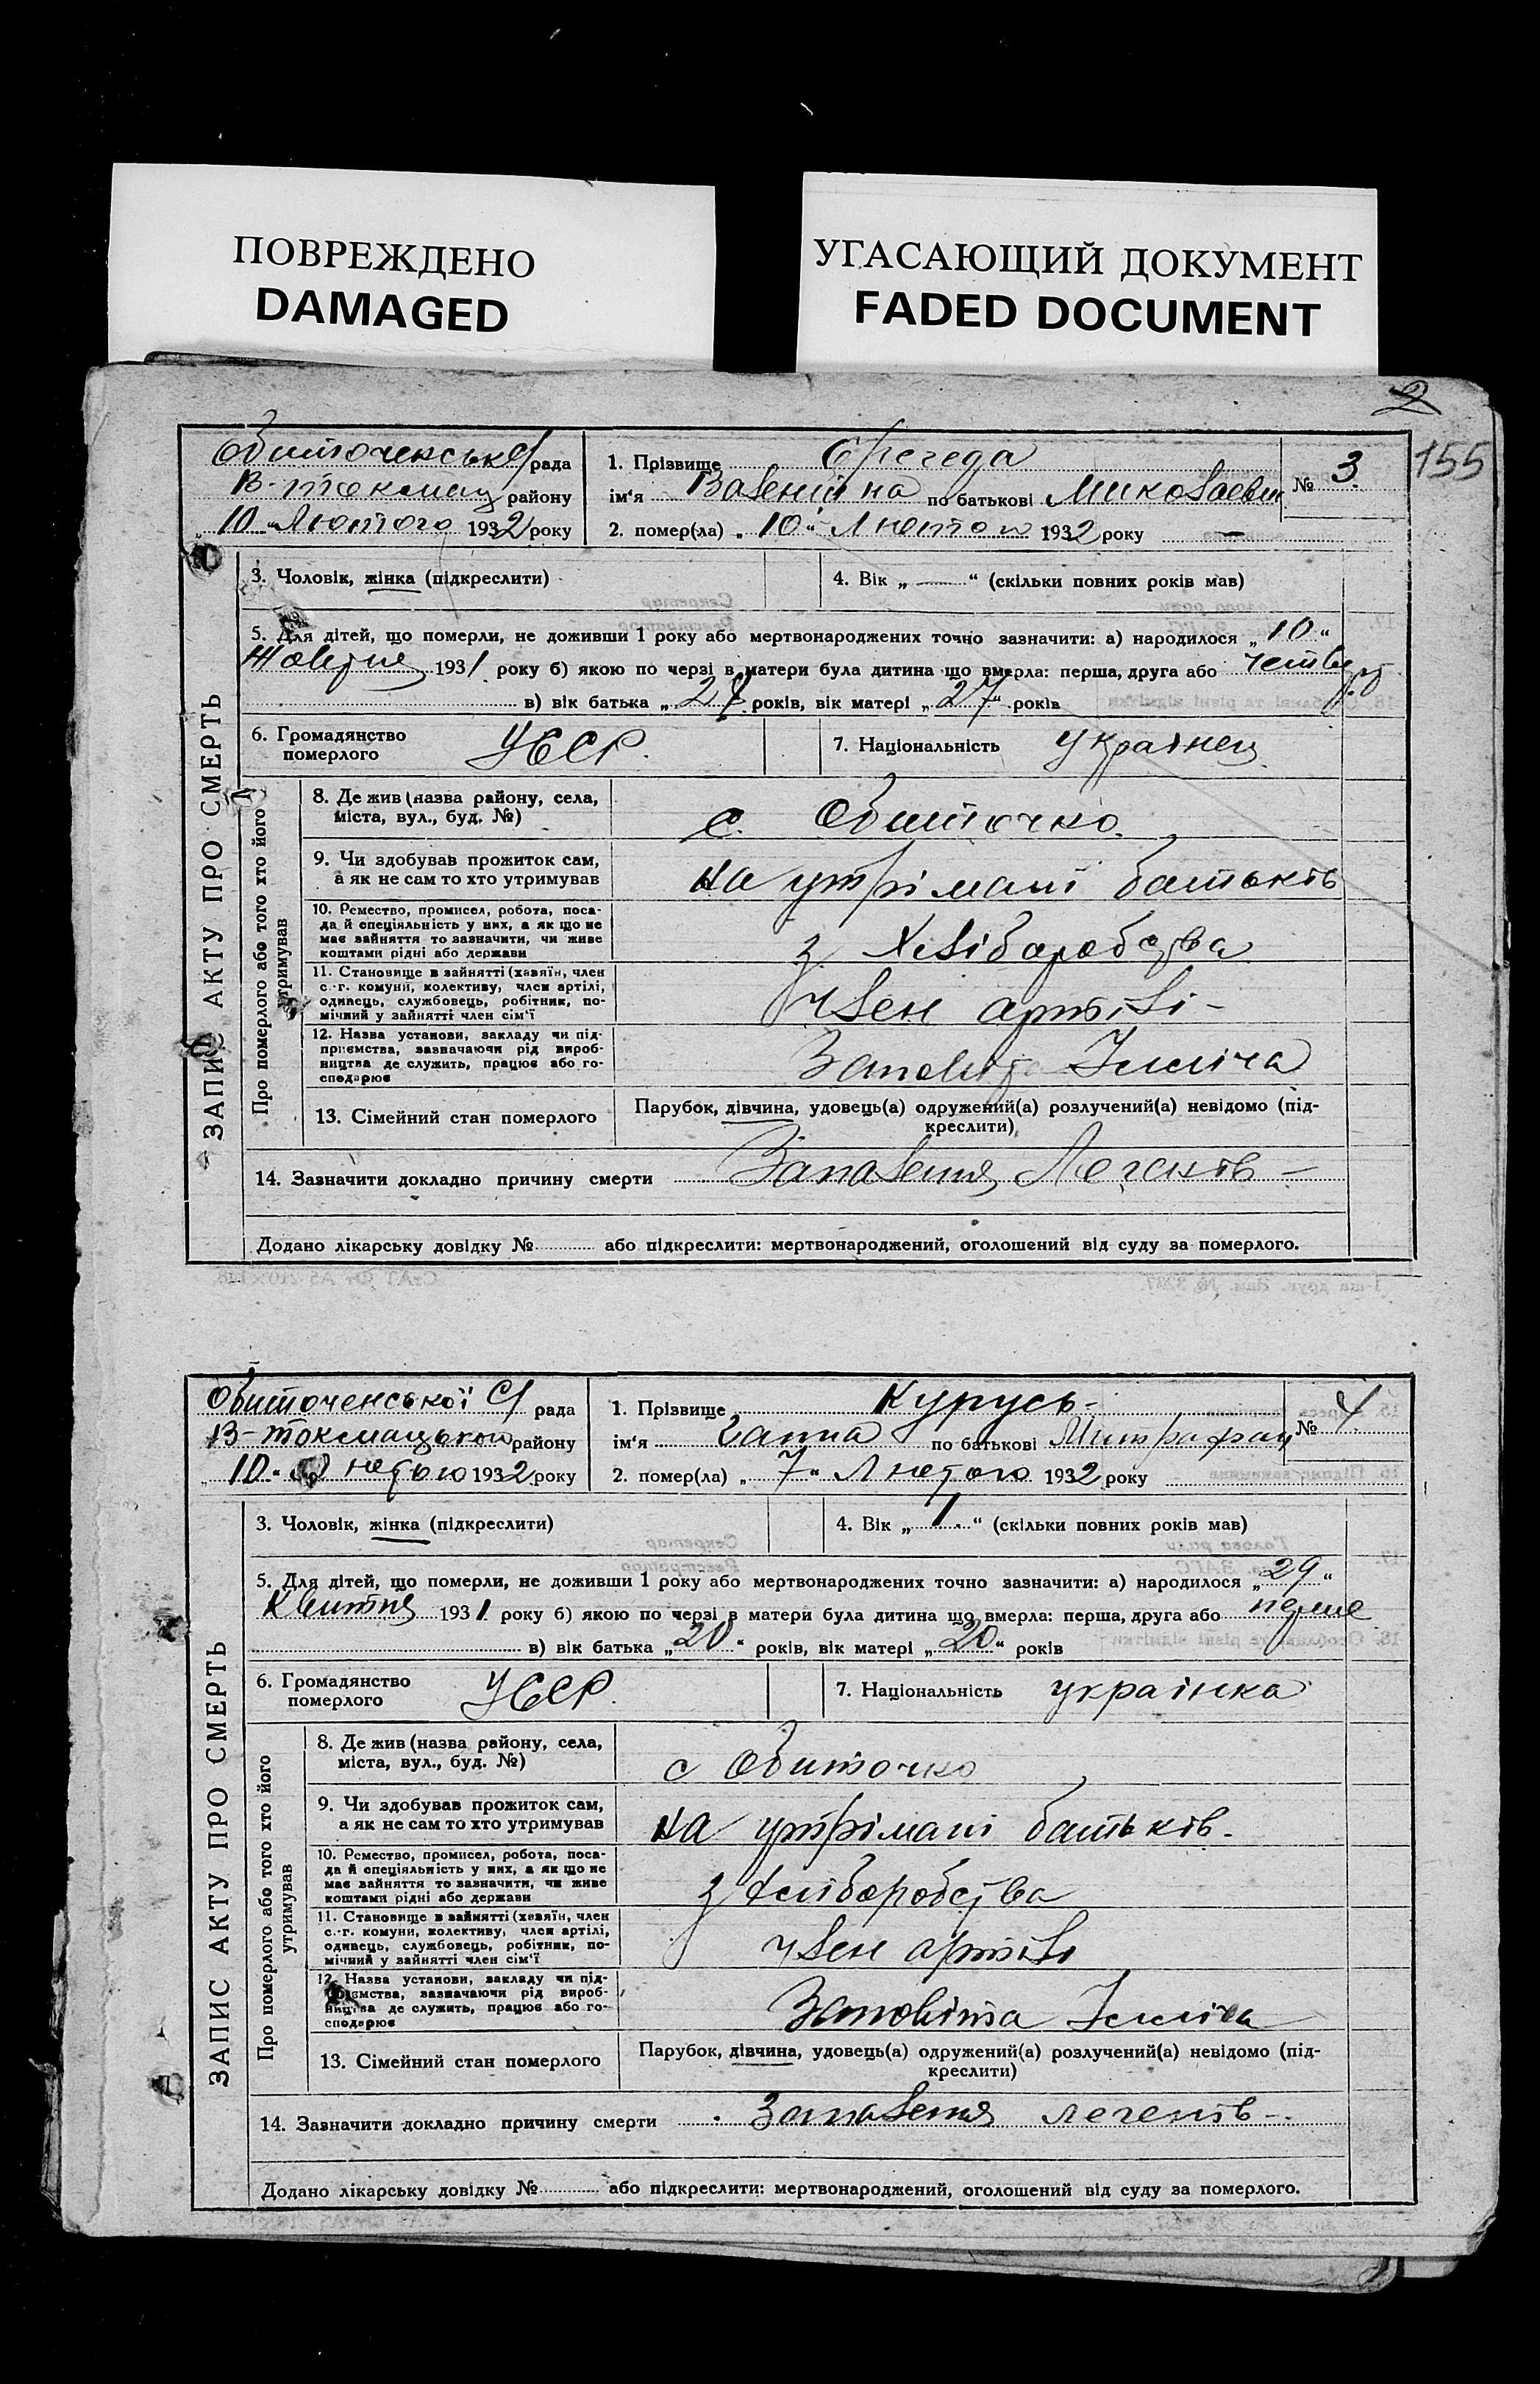 ПОВРЕЖДЕНО
DAMAGED
УГАСАЮЩИЙ ДОКУМЕНТ
FADED DOCUMENT
2
155
Обиточенська С/рада
В-Токмац району
„10" Лютого 1932 року
1. Прізвище
ім'я Валентина по батькові Миколаевн
2. помер(ла) „10" Лютого 1932 року —
№ 3.
ЗАПИС АКТУ ПРО СМЕРТЬ
3. Чоловік, жінка (підкреслити)
4. Вік „ — " (скільки повних років мав)
5. Для дітей, що померли, не доживши 1 року або мертвонароджених точно зазначити: а) народилося „10"
Жовтня 1931 року б) якою по черзі в матери була дитина що вмерла: перша, друга або
в) вік батька „ років, вік матері „27" років
6. Громадянство померлого УССР.
7. Національність Українец
Про померлого або того хто його утримував
8. Де жив (назва району, села, міста, вул., буд. №)
с. Обиточно
9. Чи здобував прожиток сам, а як не сам то хто утримував
на утрімані батьків
10. Ремество, промисел, робота, посада й спеціяльність у них, а як що не має зайняття то зазначити, чи живе коштами рідні або держави
з Хліборобства
11. Становище в зайнятті (хазяїн, член с.-г. комуни, колективу, член артілі, одинець, службовець, робітник, помічний у зайнятті член сім'ї
член артілі —
12. Назва установи, закладу чи підприємства, зазначаючи рід виробництва де служить, працює або господарює
Заповіта Ілліча
13. Сімейний стан померлого
Парубок, дівчина, удовець(а) одружений(а) розлучений(а) невідомо (підкреслити)
14. Зазначити докладно причину смерти Запаленя Легенів —
Додано лікарську довідку № або підкреслити: мертвонароджений, оголошений від суду за померлого.
Обиточенської С/ рада
В-Токмацького району
„10" Лютого 1932 року
1. Прізвище Курусь-
ім'я Ганна по батькові Митрафан
2. помер(ла) „7" Лютого 1932 року
№ 4.
ЗАПИС АКТУ ПРО СМЕРТЬ
3. Чоловік, жінка (підкреслити)
4. Вік „1." (скільки повних років мав)
5. Для дітей, що померли, не доживши 1 року або мертвонароджених точно зазначити: а) народилося „29"
Квитня 1931 року б) якою по черзі в матери була дитина що вмерла: перша, друга або перше
в) вік батька „20" років, вік матері „20" років
6. Громадянство померлого УССР.
7. Національність українка
Про померлого або того хто його утримував
8. Де жив (назва району, села, міста, вул., буд. №)
с Обиточно
9. Чи здобував прожиток сам, а як не сам то хто утримував
на утрімані батьків.
10. Ремество, промисел, робота, посада й спеціяльність у них, а як що не має зайняття то зазначити, чи живе коштами рідні або держави
з Хліборобства
11. Становище в зайнятті (хазяїн, член с.-г. комуни, колективу, член артілі, одинець, службовець, робітник, помічний у зайнятті член сім'ї
член артілі
12. Назва установи, закладу чи підприємства, зазначаючи рід виробництва де служить, працює або господарює
Заповіта Ілліча
13. Сімейний стан померлого
Парубок, дівчина, удовець(а) одружений(а) розлучений(а) невідомо (підкреслити)
14. Зазначити докладно причину смерти Запаленя легенів —.
Додано лікарську довідку № або підкреслити: мертвонароджений, оголошений від суду за померлого.